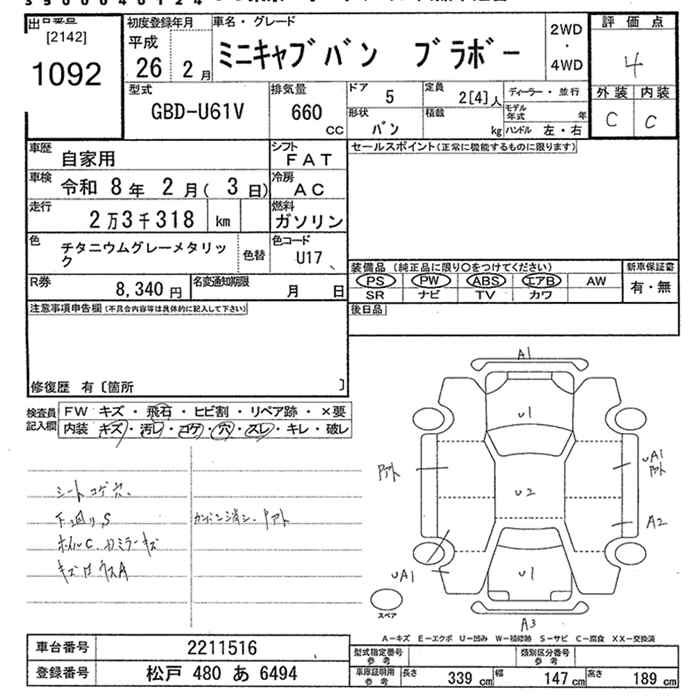 [2142]
1092
初度登録年月
平成
26 2月
車名・グレード
ミニキャブバン ブラボー
2WD
・
4WD
評価点
4
外装 内装
C C
型式
GBD-U61V
排気量
660
CC
ドア
5
定員
2[4]人
形状
バン
積載
kg
ディーラー・並行
モデル年式 年
ハンドル 左・右
車歴
自家用
シフト
FAT
車検
令和 8年 2月( 3日)
冷房
AC
走行
2万3千318 km
燃料
ガソリン
色
チタニウムグレーメタリック
色替
色コード
U17
R券
8,340円
名変通知期限
月 日
セールスポイント(正常に機能するものに限ります)
装備品 (純正品に限り○をつけてください)
PS PW ABS エアB AW
SR ナビ TV カワ
新車保証書
有・無
後日品
注意事項申告欄(不具合内容等は具体的に記入して下さい)
修復歴 有〔箇所 〕
検査員
記入欄
FW キズ・飛石・ヒビ割・リペア跡・×要
内装 キズ・汚レ・コゲ・穴・スレ・キレ・破レ
シートコゲ穴
下廻りS
ホイルC
カンバン消シ
A1
U1
アト
UA1
アト
U2
A2
UA1
U1
A3
スペア
A-キズ E-エクボ U-凹み W-補修跡 S-サビ C-腐食 XX-交換済
車台番号
2211516
登録番号
松戸 480 あ 6494
型式指定番号
参考
類別区分番号
参考
車庫証明用
参考
長さ
339 cm
幅
147 cm
高さ
189 cm